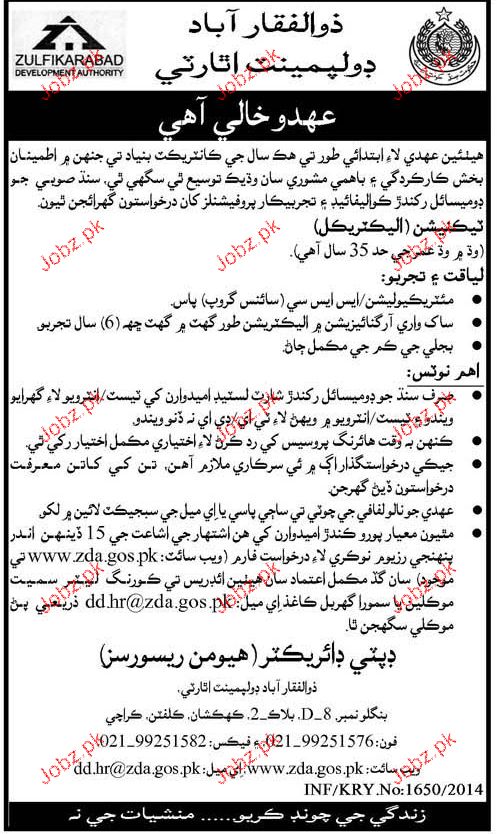 ذوالفقار آباد
ڊولپمينٽ اٿارٽي
ZULFIKARABAD
DEVELOPMENT AUTHORITY
عهدو خالي آهي
هيٺئين عهدي لاءِ ابتدائي طور تي هڪ سال جي ڪانٽريڪٽ بنياد تي جنهن ۾ اطمينان
بخش ڪارڪردگي ۽ باهمي مشوري سان وڌيڪ توسيع ٿي سگهي ٿي، سنڌ صوبي جو
ڊوميسائل رکندڙ ڪواليفائيڊ ۽ تجربيڪار پروفيشنلز کان درخواستون گهرائجن ٿيون.
ٽيڪنيشن (اليڪٽريڪل)
(وڌ ۾ وڌ عمر جي حد 35 سال آهي).
لياقت ۽ تجربو:
● مئٽريڪيوليشن/ايس ايس سي (سائنس گروپ) پاس.
● ساک واري آرگنائيزيشن ۾ اليڪٽريشن طور گهٽ ۾ گهٽ ڇهه (6) سال تجربو.
● بجلي جي ڪم جي مڪمل ڄاڻ.
اهم نوٽس:
● صرف سنڌ جو ڊوميسائل رکندڙ شارٽ لسٽيڊ اميدوارن کي ٽيسٽ/انٽرويو لاءِ گهرايو
ويندو ٽيسٽ/انٽرويو ۾ ويهڻ لاءِ ٽي اي/ڊي اي نه ڏنو ويندو.
● ڪنهن به وقت هائرنگ پروسيس کي رد ڪرڻ لاءِ اختياري مڪمل اختيار رکي ٿي.
● جيڪي درخواستگذار اڳ ۾ ئي سرڪاري ملازم آهن، تن کي کاتن معرفت
درخواستون ڏيڻ گهرجن.
● عهدي جو نالو لفافي جي چوٽي تي ساڄي پاسي يا اِي ميل جي سبجيڪٽ لائين ۾ لکو.
● مٿيون معيار پورو ڪندڙ اميدوارن کي هن اشتهار جي اشاعت جي 15 ڏينهن اندر
پنهنجي رزيوم نوڪري لاءِ درخواست فارم (ويب سائٽ: www.zda.gos.pk تي
موجود) سان گڏ مڪمل اعتماد سان هيٺين ائڊريس تي ڪورنگ ليٽر سميت
موڪلين يا سمورا گهربل ڪاغذ اِي ميل: dd.hr@zda.gos.pk ذريعي پڻ
موڪلي سگهجن ٿا.
ڊپٽي ڊائريڪٽر (هيومن ريسورسز)
ذوالفقار آباد ڊولپمينٽ اٿارٽي،
بنگلو نمبر D_8، بلاڪ_2، ڪهڪشان، ڪلفٽن، ڪراچي
فون: 99251576_021 ۽ فيڪس: 99251582_021
ويب سائٽ: www.zda.gos.pk اِي ميل: dd.hr@zda.gos.pk
INF/KRY.No:1650/2014
زندگي جي چونڊ ڪريو...... منشيات جي نه
Jobz.pk